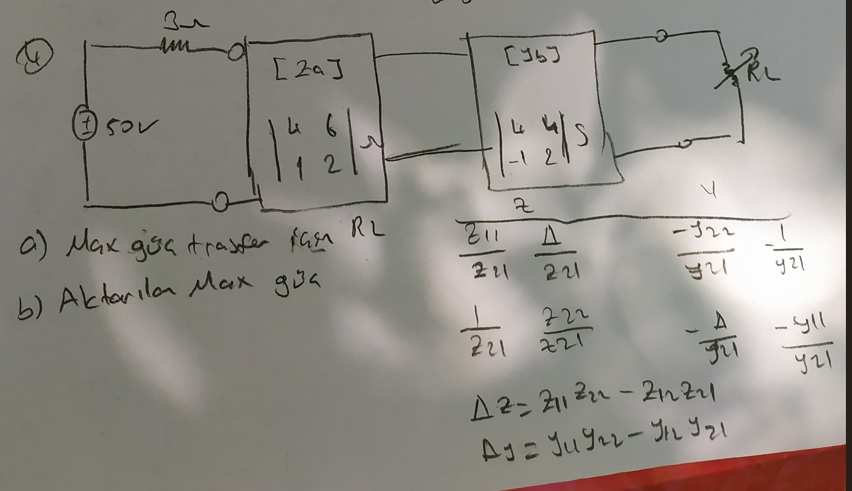 4
3Ω
50V
[Za]
4 6
1 2
Ω
[yb]
4 4
-1 2
S
RL
a) Max güç trasfer için RL
b) Aktarılan Max güç
Z
Y
Z11/Z21 Δ/Z21
1/Z21 Z22/Z21
-y22/y21 -1/y21
-Δ/y21 -y11/y21
ΔZ = Z11 Z22 - Z12 Z21
Δy = y11 y22 - y12 y21